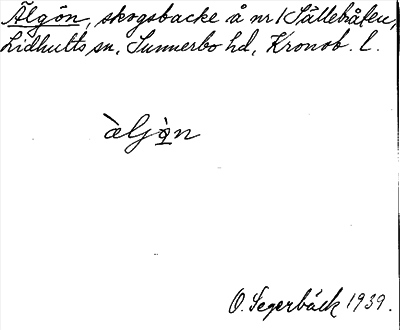 Älgön, skogsbacke å nr 1 Sällebråten,
Lidhults sn, Sunnerbo hd, Kronob. l.
àljò̠n
O. Segerbäck 1939.